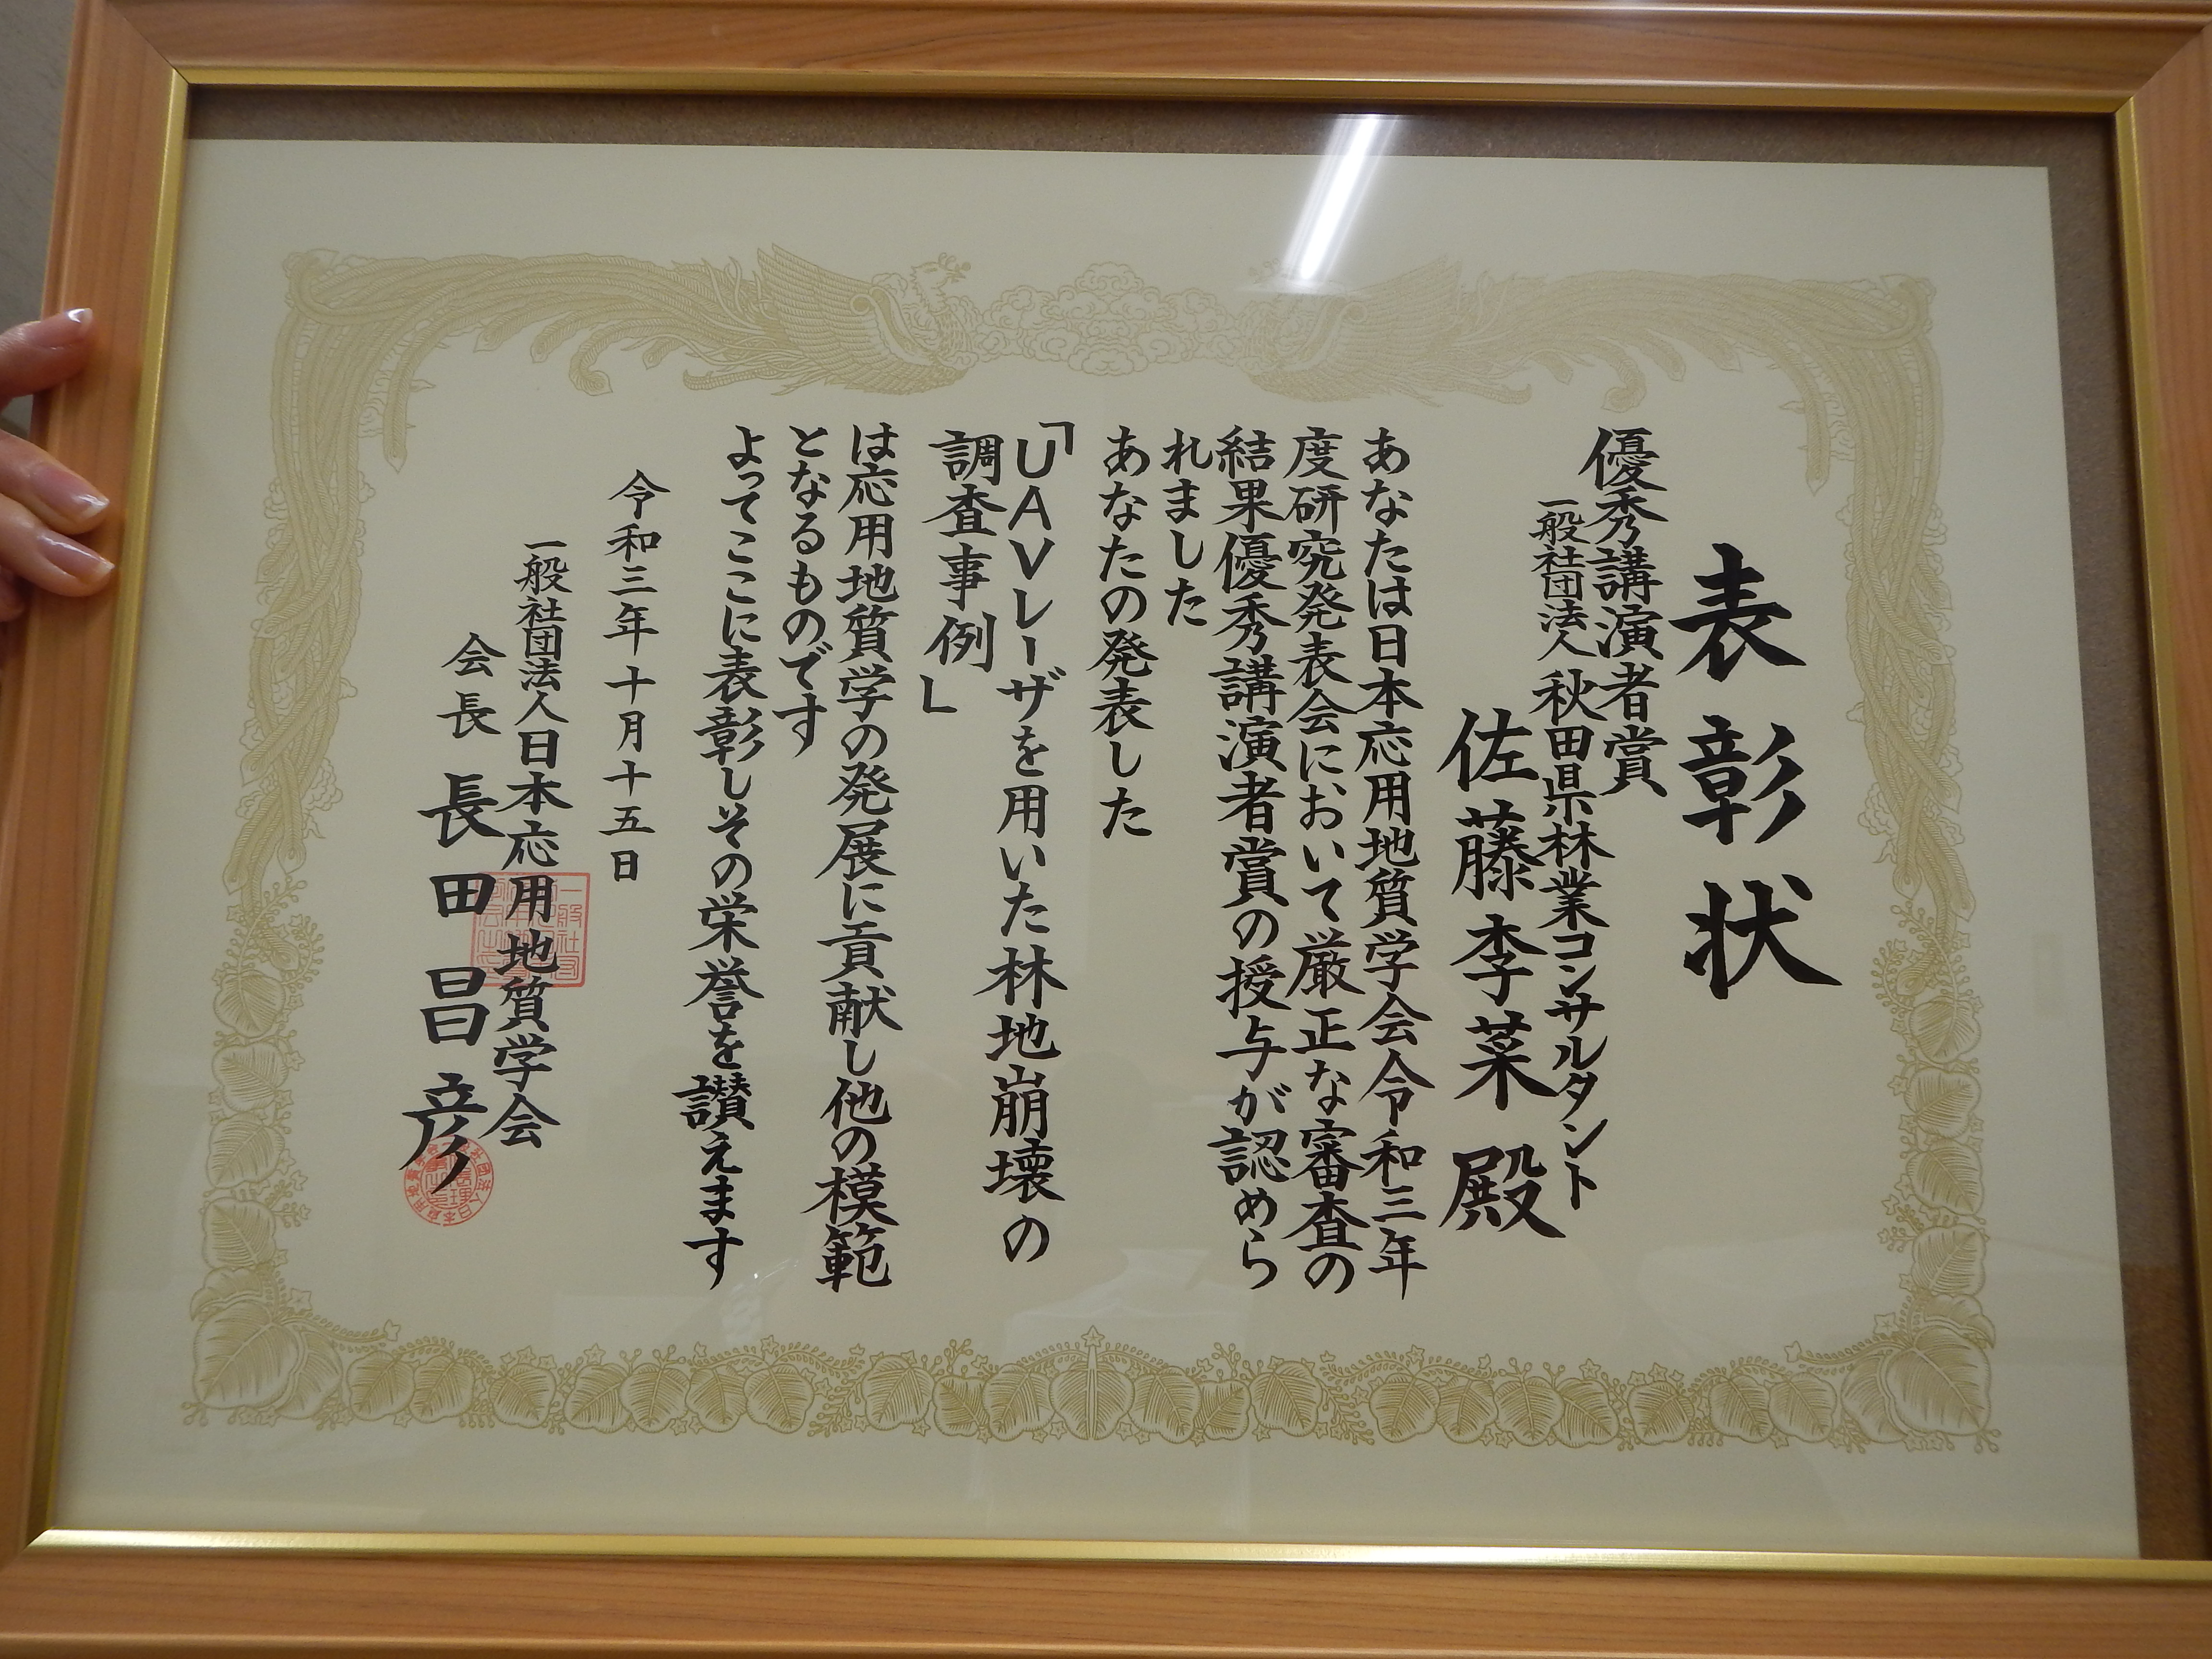 表彰状
優秀講演者賞
一般社団法人 秋田県林業コンサルタント
佐藤李菜 殿
あなたは日本応用地質学会令和三年
度研究発表会において厳正な審査の
結果優秀講演者賞の授与が認めら
れました
あなたの発表した
「UAVレーザを用いた林地崩壊の
調査事例」
は応用地質学の発展に貢献し他の模範
となるものです
よってここに表彰しその栄誉を讃えます
令和三年十月十五日
一般社団法人日本応用地質学会
会長 長田昌彦